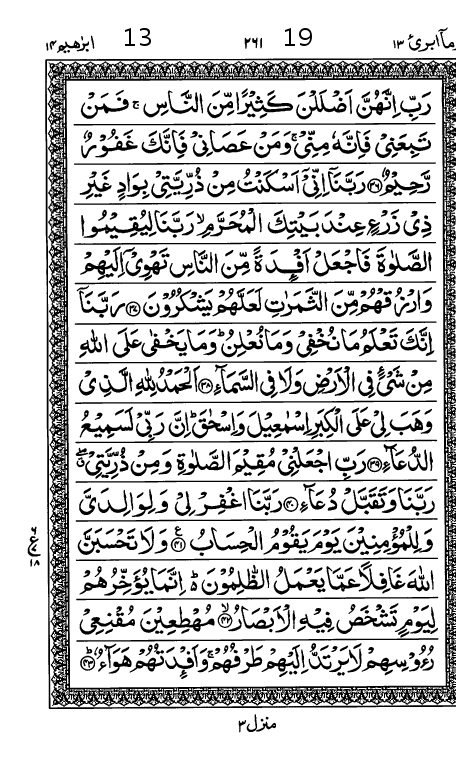 وما ابرئ ۱۳ 19 ۲۶۱ 13 ابرٰهیم ۱۴
رَبِّ اِنَّهُنَّ اَضْلَلْنَ كَثِیْرًا مِّنَ النَّاسِ ۚ فَمَنْ
تَبِعَنِیْ فَاِنَّهٗ مِنِّیْ ۚ وَمَنْ عَصَانِیْ فَاِنَّكَ غَفُوْرٌ
رَّحِیْمٌ ﴿۳۶﴾ رَبَّنَاۤ اِنِّیْۤ اَسْكَنْتُ مِنْ ذُرِّیَّتِیْ بِوَادٍ غَیْرِ
ذِیْ زَرْعٍ عِنْدَ بَیْتِكَ الْمُحَرَّمِ ۙ رَبَّنَا لِیُقِیْمُوا
الصَّلٰوةَ فَاجْعَلْ اَفْـِٕدَةً مِّنَ النَّاسِ تَهْوِیْۤ اِلَیْهِمْ
وَارْزُقْهُمْ مِّنَ الثَّمَرٰتِ لَعَلَّهُمْ یَشْكُرُوْنَ ﴿۳۷﴾ رَبَّنَاۤ
اِنَّكَ تَعْلَمُ مَا نُخْفِیْ وَمَا نُعْلِنُ ؕ وَمَا یَخْفٰی عَلَی اللّٰهِ
مِنْ شَیْءٍ فِی الْاَرْضِ وَلَا فِی السَّمَآءِ ﴿۳۸﴾ اَلْحَمْدُ لِلّٰهِ الَّذِیْ
وَهَبَ لِیْ عَلَی الْكِبَرِ اِسْمٰعِیْلَ وَاِسْحٰقَ ؕ اِنَّ رَبِّیْ لَسَمِیْعُ
الدُّعَآءِ ﴿۳۹﴾ رَبِّ اجْعَلْنِیْ مُقِیْمَ الصَّلٰوةِ وَمِنْ ذُرِّیَّتِیْ ۖۗ
رَبَّنَا وَتَقَبَّلْ دُعَآءِ ﴿۴۰﴾ رَبَّنَا اغْفِرْ لِیْ وَلِوَالِدَیَّ
وَلِلْمُؤْمِنِیْنَ یَوْمَ یَقُوْمُ الْحِسَابُ ﴿۴۱﴾ وَلَا تَحْسَبَنَّ
اللّٰهَ غَافِلًا عَمَّا یَعْمَلُ الظّٰلِمُوْنَ ؕ۬ اِنَّمَا یُؤَخِّرُهُمْ
لِیَوْمٍ تَشْخَصُ فِیْهِ الْاَبْصَارُ ﴿۴۲﴾ مُهْطِعِیْنَ مُقْنِعِیْ
رُءُوْسِهِمْ لَا یَرْتَدُّ اِلَیْهِمْ طَرْفُهُمْ ۚ وَاَفْـِٕدَتُهُمْ هَوَآءٌ ﴿۴۳﴾
منزل ۳